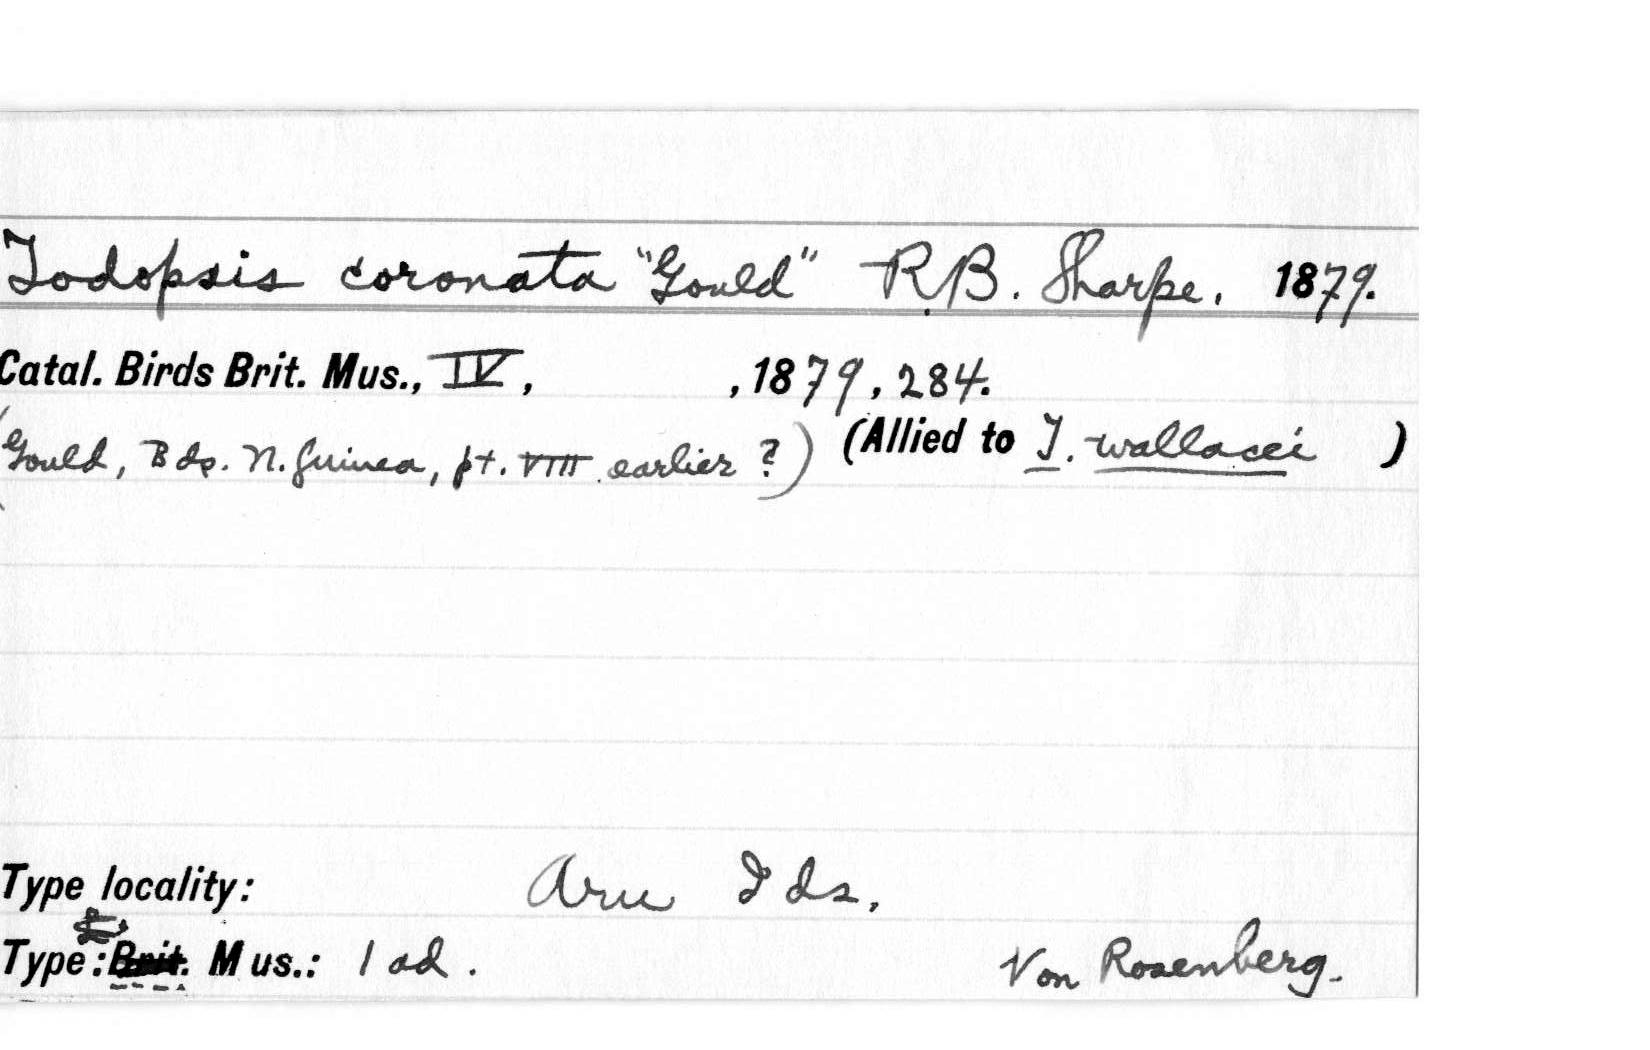 Todopsis coronata "Gould" R.B. Sharpe. 1879.
Catal. Birds Brit. Mus., IV, , 1879, 284.
(Gould, Bds. N. Guinea, pt. VIII earlier ?) (Allied to T. wallacei )
Type locality: Aru Ids.
Type: Brit. Mus.: 1 ad. Von Rosenberg.